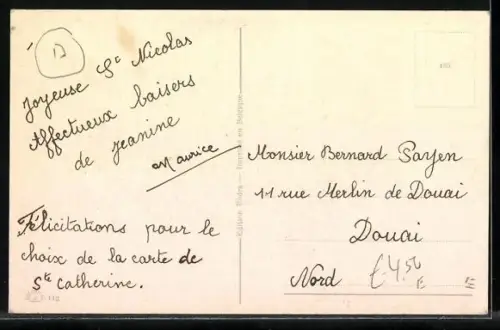 D
Joyeuse St Nicolas
Affectueux baisers
de Jeanine
Maurice
Félicitations pour le
choix de la carte de
Ste Catherine.
Monsieur Bernard Payen
11 rue Merlin de Douai
Douai
Nord
£4.50